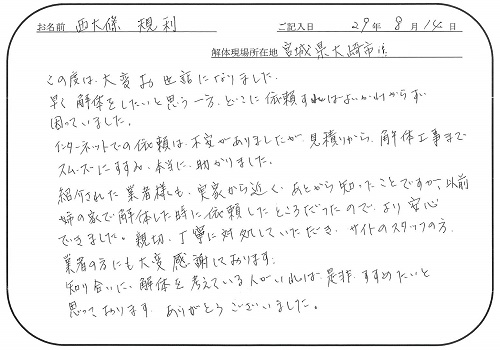 お名前 西大條 規利 ご記入日 29年 8月 14日
解体現場所在地 宮城県大崎市
この度は、大変お世話になりました。
早く解体をしたいと思う一方、どこに依頼すればよいかわからず
困っていました。
インターネットでの依頼は、不安がありましたが、見積りから、解体工事まで
スムーズにすすみ、本当に助かりました。
紹介された業者様も、実家から近く、あとから知ったことですが、以前
姉の家で解体した時に依頼したところだったので、より安心
できました。親切、丁寧に対処していただき、サイトのスタッフの方、
業者の方にも大変感謝しております。
知り合いに、解体を考えている人がいれば、是非、すすめたいと
思っております。ありがとうございました。